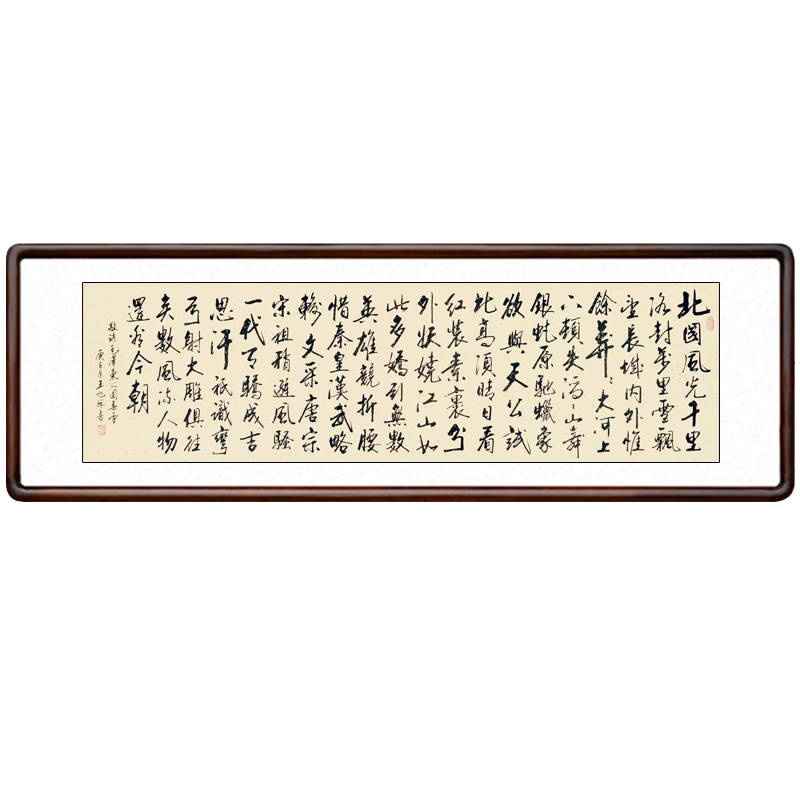 北國風光千里
冰封萬里雪飄
望長城內外惟
餘莽〻大河上
下頓失滔〻山舞
銀蛇原馳蠟象
欲與天公試
比高須晴日看
紅裝素裹分
外妖嬈江山如
此多嬌引無數
英雄競折腰
惜秦皇漢武略
輸文采唐宗
宋祖稍遜風騷
一代天驕成吉
思汗祇識彎
弓射大雕俱往
矣數風流人物
還看今朝
敬錄毛澤東沁園春雪